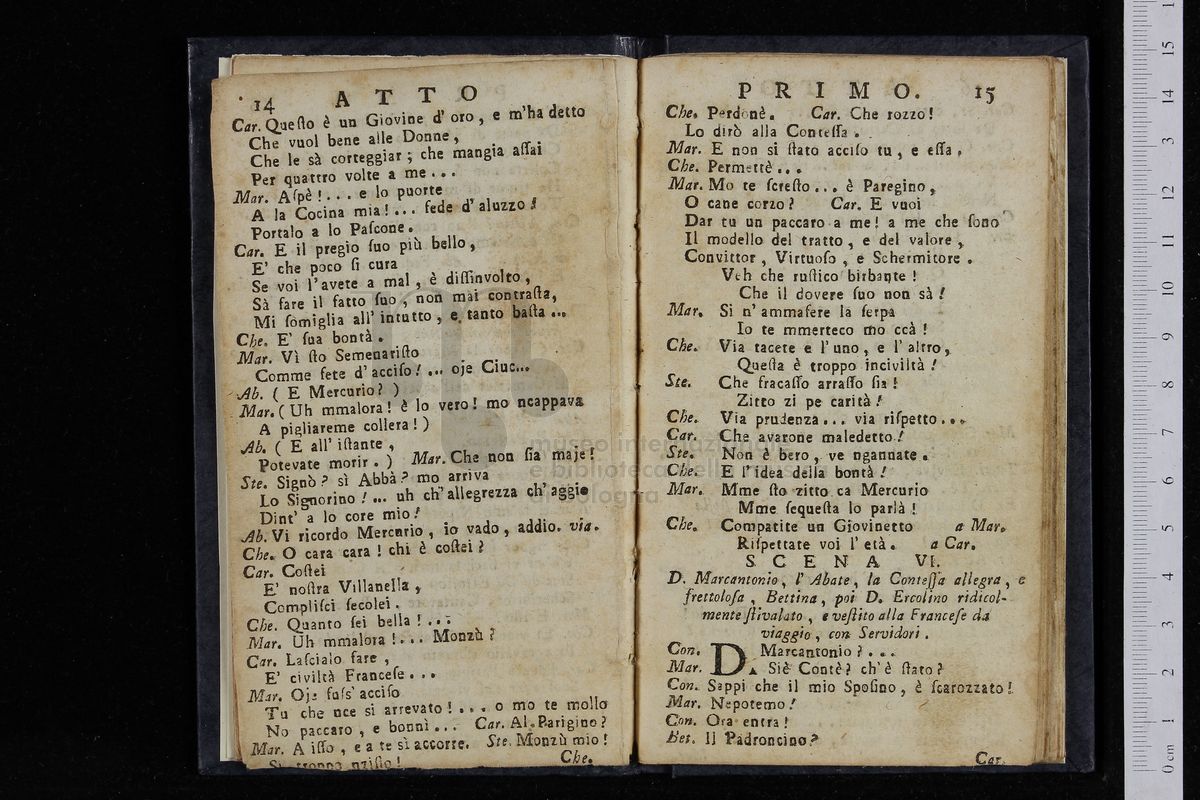 14 ATTO
Car. Queſto è un Giovine d' oro, e m'ha detto
Che vuol bene alle Donne,
Che le sà corteggiar; che mangia aſſai
Per quattro volte a me...
Mar. Aſpè!... e lo puorte
A la Cocina mia!... fede d' aluzzo!
Portalo a lo Paſcone.
Car. E il pregio ſuo più bello,
E' che poco ſi cura
Se voi l'avete a mal, è diſſinvolto,
Sà fare il fatto ſuo, non mai contraſta,
Mi ſomiglia all' intutto, e tanto baſta...
Che. E' ſua bontà.
Mar. Vì ſto Semenariſto
Comme ſete d' acciſo!... oje Ciuc...
Ab. (E Mercurio?)
Mar. (Uh mmalora! è lo vero! mo ncappava
A pigliareme collera!)
Ab. (E all' iſtante,
Potevate morir.) Mar. Che non ſia maje!
Ste. Signò? sì Abbà? mo arriva
Lo Signorino!... uh ch' allegrezza ch' aggio
Dint' a lo core mio!
Ab. Vi ricordo Mercurio, io vado, addio. via.
Che. O cara cara! chi è coſtei?
Car. Coſtei
E' noſtra Villanella,
Compliſci ſecolei.
Che. Quanto ſei bella!...
Mar. Uh mmalora!... Monzù?
Car. Laſcialo fare,
E' civiltà Franceſe...
Mar. Oje fuſs' acciſo
Tu che nce si arrevato!... o mo te mollo
No paccaro, e bonnì... Car. Al Parigino?
Mar. A iſſo, e a te si accorre. Ste. Monzù mio!
Che.
PRIMO. 15
Che. Perdonè. Car. Che rozzo!
Lo dirò alla Conteſſa.
Mar. E non si ſtato acciſo tu, e eſſa.
Che. Permettè...
Mar. Mo te ſcreſto... è Paregino,
O cane corzo? Car. E vuoi
Dar tu un paccaro a me! a me che ſono
Il modello del tratto, e del valore,
Convittor, Virtuoſo, e Schermitore.
Veh che ruſtico birbante!
Che il dovere ſuo non sà!
Mar. Si n' ammafere la ſerpa
Io te mmerteco mo ccà!
Che. Via tacete e l' uno, e l' altro,
Queſta è troppo inciviltà!
Ste. Che fracaſſo arraſſo ſia!
Zitto zi pe carità!
Che. Via prudenza... via riſpetto...
Car. Che avarone maledetto!
Ste. Non è bero, ve ngannate.
Che. E l' idea della bontà!
Mar. Mme ſto zitto ca Mercurio
Mme ſequeſta lo parlà!
Che. Compatite un Giovinetto a Mar.
Riſpettate voi l' età. a Car.
SCENA VI.
D. Marcantonio, l' Abate, la Conteſſa allegra, e
frettoloſa, Bettina, poi D. Ercolino ridicol-
mente ſtivalato, e veſtito alla Franceſe da
viaggio, con Servidori.
Con. D. Marcantonio?...
Mar. Siè Contè? ch' è ſtato?
Con. Sappi che il mio Spoſino, è ſcarozzato!
Mar. Nepotemo!
Con. Ora entra!
Bet. Il Padroncino?
Car.
museo internazionale
e biblioteca della musica
di bologna